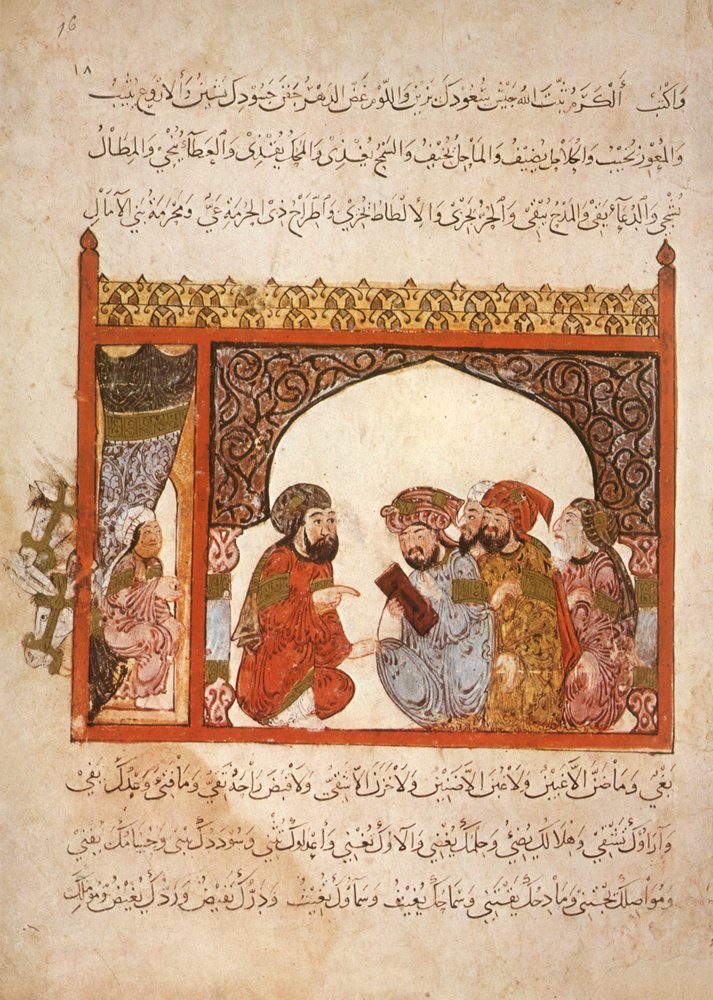 16
١٨
وَاكتب الْكَرَمُ ثبَّتَ اللهُ جَيْشَ سُعُودِكَ يَزينُ وَاللُّومُ غَضَّ الدَّهْرُ جَفنَ حَسُودِكَ يَشينُ وَالْاروَعُ يُثيبُ
وَالْمُعْوِرُ يُخَيِّبُ وَالْحُلَاحِلُ يُضيفُ وَالْمَاحِلُ يُخيفُ وَالسَّمْحُ يُغْذِي وَالْمَحِكُ يُقْذِي وَالْعَطَآءُ يُنْجِي وَالْمِطَالُ
يُشْجِي وَالدُّعَآءُ يَقي وَالْمَدْحُ يُنَقِّي وَالْحُرُّ يَجْزِي وَالْالْطَاطُ يُخْزِي وَاطِّرَاحُ ذِي الْحُرْمَةِ غَيٌّ وَمَحْرَمَةُ بَنِي الْآمَالِ
بَغْيٌ وَمَا ضَنَّ الَّا غَبِينٌ وَلَا غُبِنَ الَّا ضَنِينٌ وَلَا خَزَنَ الَّا شَقِيٌّ وَلَا قَبَضَ رَاحَهُ تَقِيٌّ وَمَا فَتِئَ وَعْدُكَ يَفِي
وَآرَاؤُكَ تَشْفِي وَهِلَالُكَ يُضِئُ وَحِلْمُكَ يُغْضِي وَآلَاؤُكَ تُغْنِي وَأَعْدَاؤُكَ تُثْنِي وَسُودَدُكَ وَحُسَامُكَ يُفْنِي
وَمُوَاصِلُكَ يَجْتَنِي وَمَادِحُكَ يَقْتَنِي وَسَمَاحُكَ يُغِيثُ وَسَمَآؤُكَ تَغِيثُ وَدَرُّكَ يَفِيضُ وَرَدُّكَ يَغِيضُ وَمُؤَمِّلُكَ